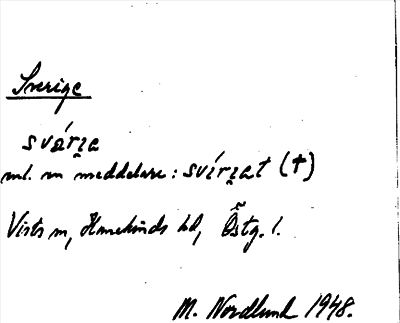 Sverige
svárɪ̯a
ml. m meddelare: svírɪ̯at (†)
Vists sn, Hanekinds hd, Östg. l.
M. Nordlund 1948.